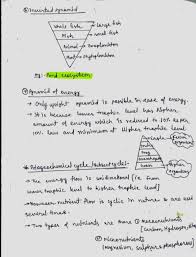 Inverted pyramid
large fish
small fish
Zooplankton
Phytoplankton
eg: Pond ecosystem
Pyramid of energy
• Only upright pyramid is possible in case of energy.
• It is because lower trophic level has higher
amount of energy which is reduced to 10% after
10% law and minimum at higher trophic level
• Biogeochemical cycle/Nutrient cycle:-
• The energy flow is unidirectional (i.e. from
lower trophic level to higher trophic level).
• However nutrient flow is cyclic in nature & are used
several times.
• Two types of nutrients are there
① Macronutrients
(carbon, Hydrogen,
② Micronutrients
(magnesium, sulphur, phosphorus)